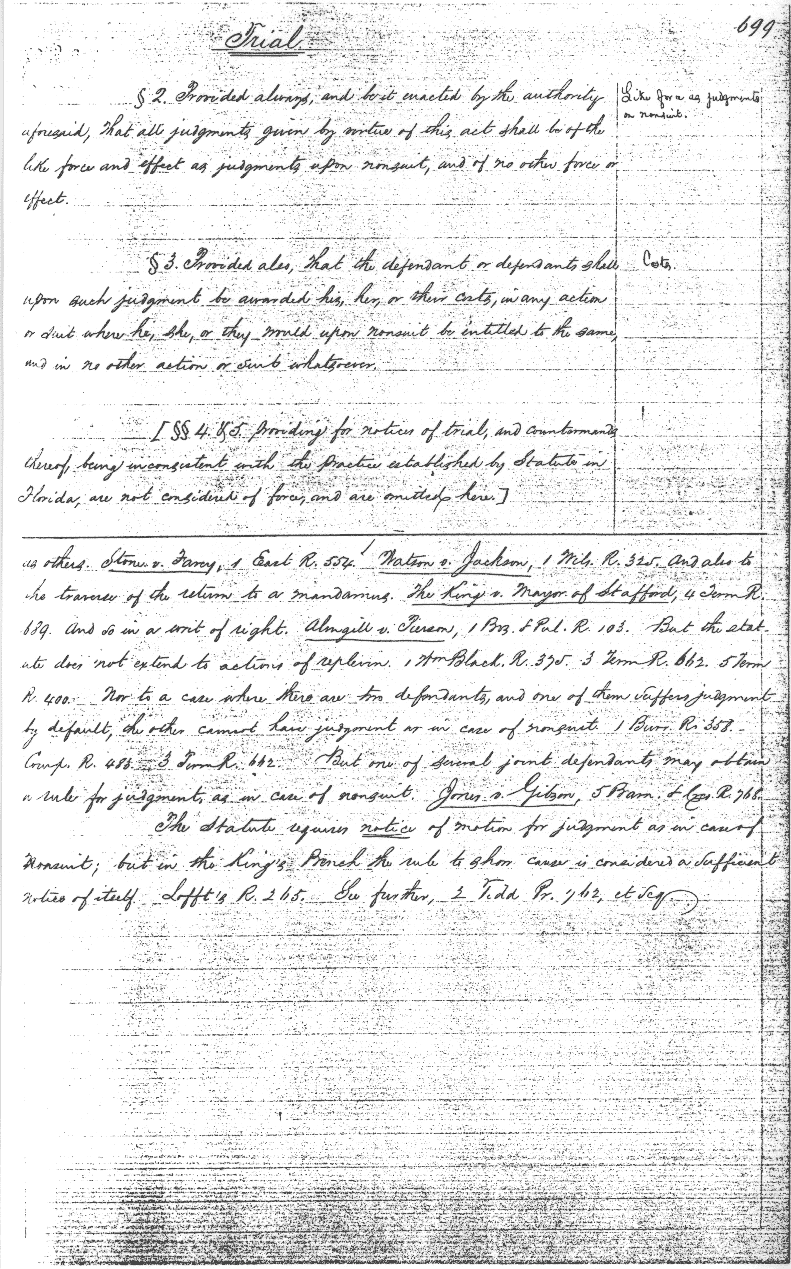 699
Trial.
§ 2. Provided always, and be it enacted by the authority
Like force as judgments
on nonsuit.
aforesaid, that all judgments given by virtue of this act shall be of the
like force and effect as judgments upon nonsuit, and of no other force or
effect.
§ 3. Provided also, That the defendant or defendants shall
Costs.
upon such judgment be awarded his, her, or their costs, in any action
or suit where he, she, or they would upon nonsuit be entitled to the same,
and in no other action or suit whatsoever.
[§§ 4. & 5. providing for notices of trial, and countermands
thereof, being inconsistent with the practice established by Statute in
Florida, are not considered of force, and are omitted here.]
as others. Stone v. Farey, 1 East R. 554. Watson v. Jackson, 1 Wils. R. 325. And also to
the traverse of the return to a mandamus. The King v. Mayor of Stafford, 4 Term R.
689. And so in a writ of right. Almgill v. Pierson, 1 Bos. & Pul. R. 103. But the stat-
ute does not extend to actions of replevin. 1 Wm Black. R. 375. 3 Term R. 662. 5 Term
R. 400. Nor to a case where there are two defendants, and one of them suffers judgment
by default, the other cannot have judgment as in case of nonsuit. 1 Burr. R. 358.
Cowp. R. 483. 3 Term R. 662. But one of several joint defendants may obtain
a rule for judgment, as in case of nonsuit. Jones v. Gibson, 5 Barn. & Cres. R. 768.
The Statute requires notice of motion for judgment as in case of
Nonsuit; but in the King's Bench the rule to show cause is considered a sufficient
notice of itself. Lofft's R. 265. See further, 2 Tidd Pr. 762, et seq.)